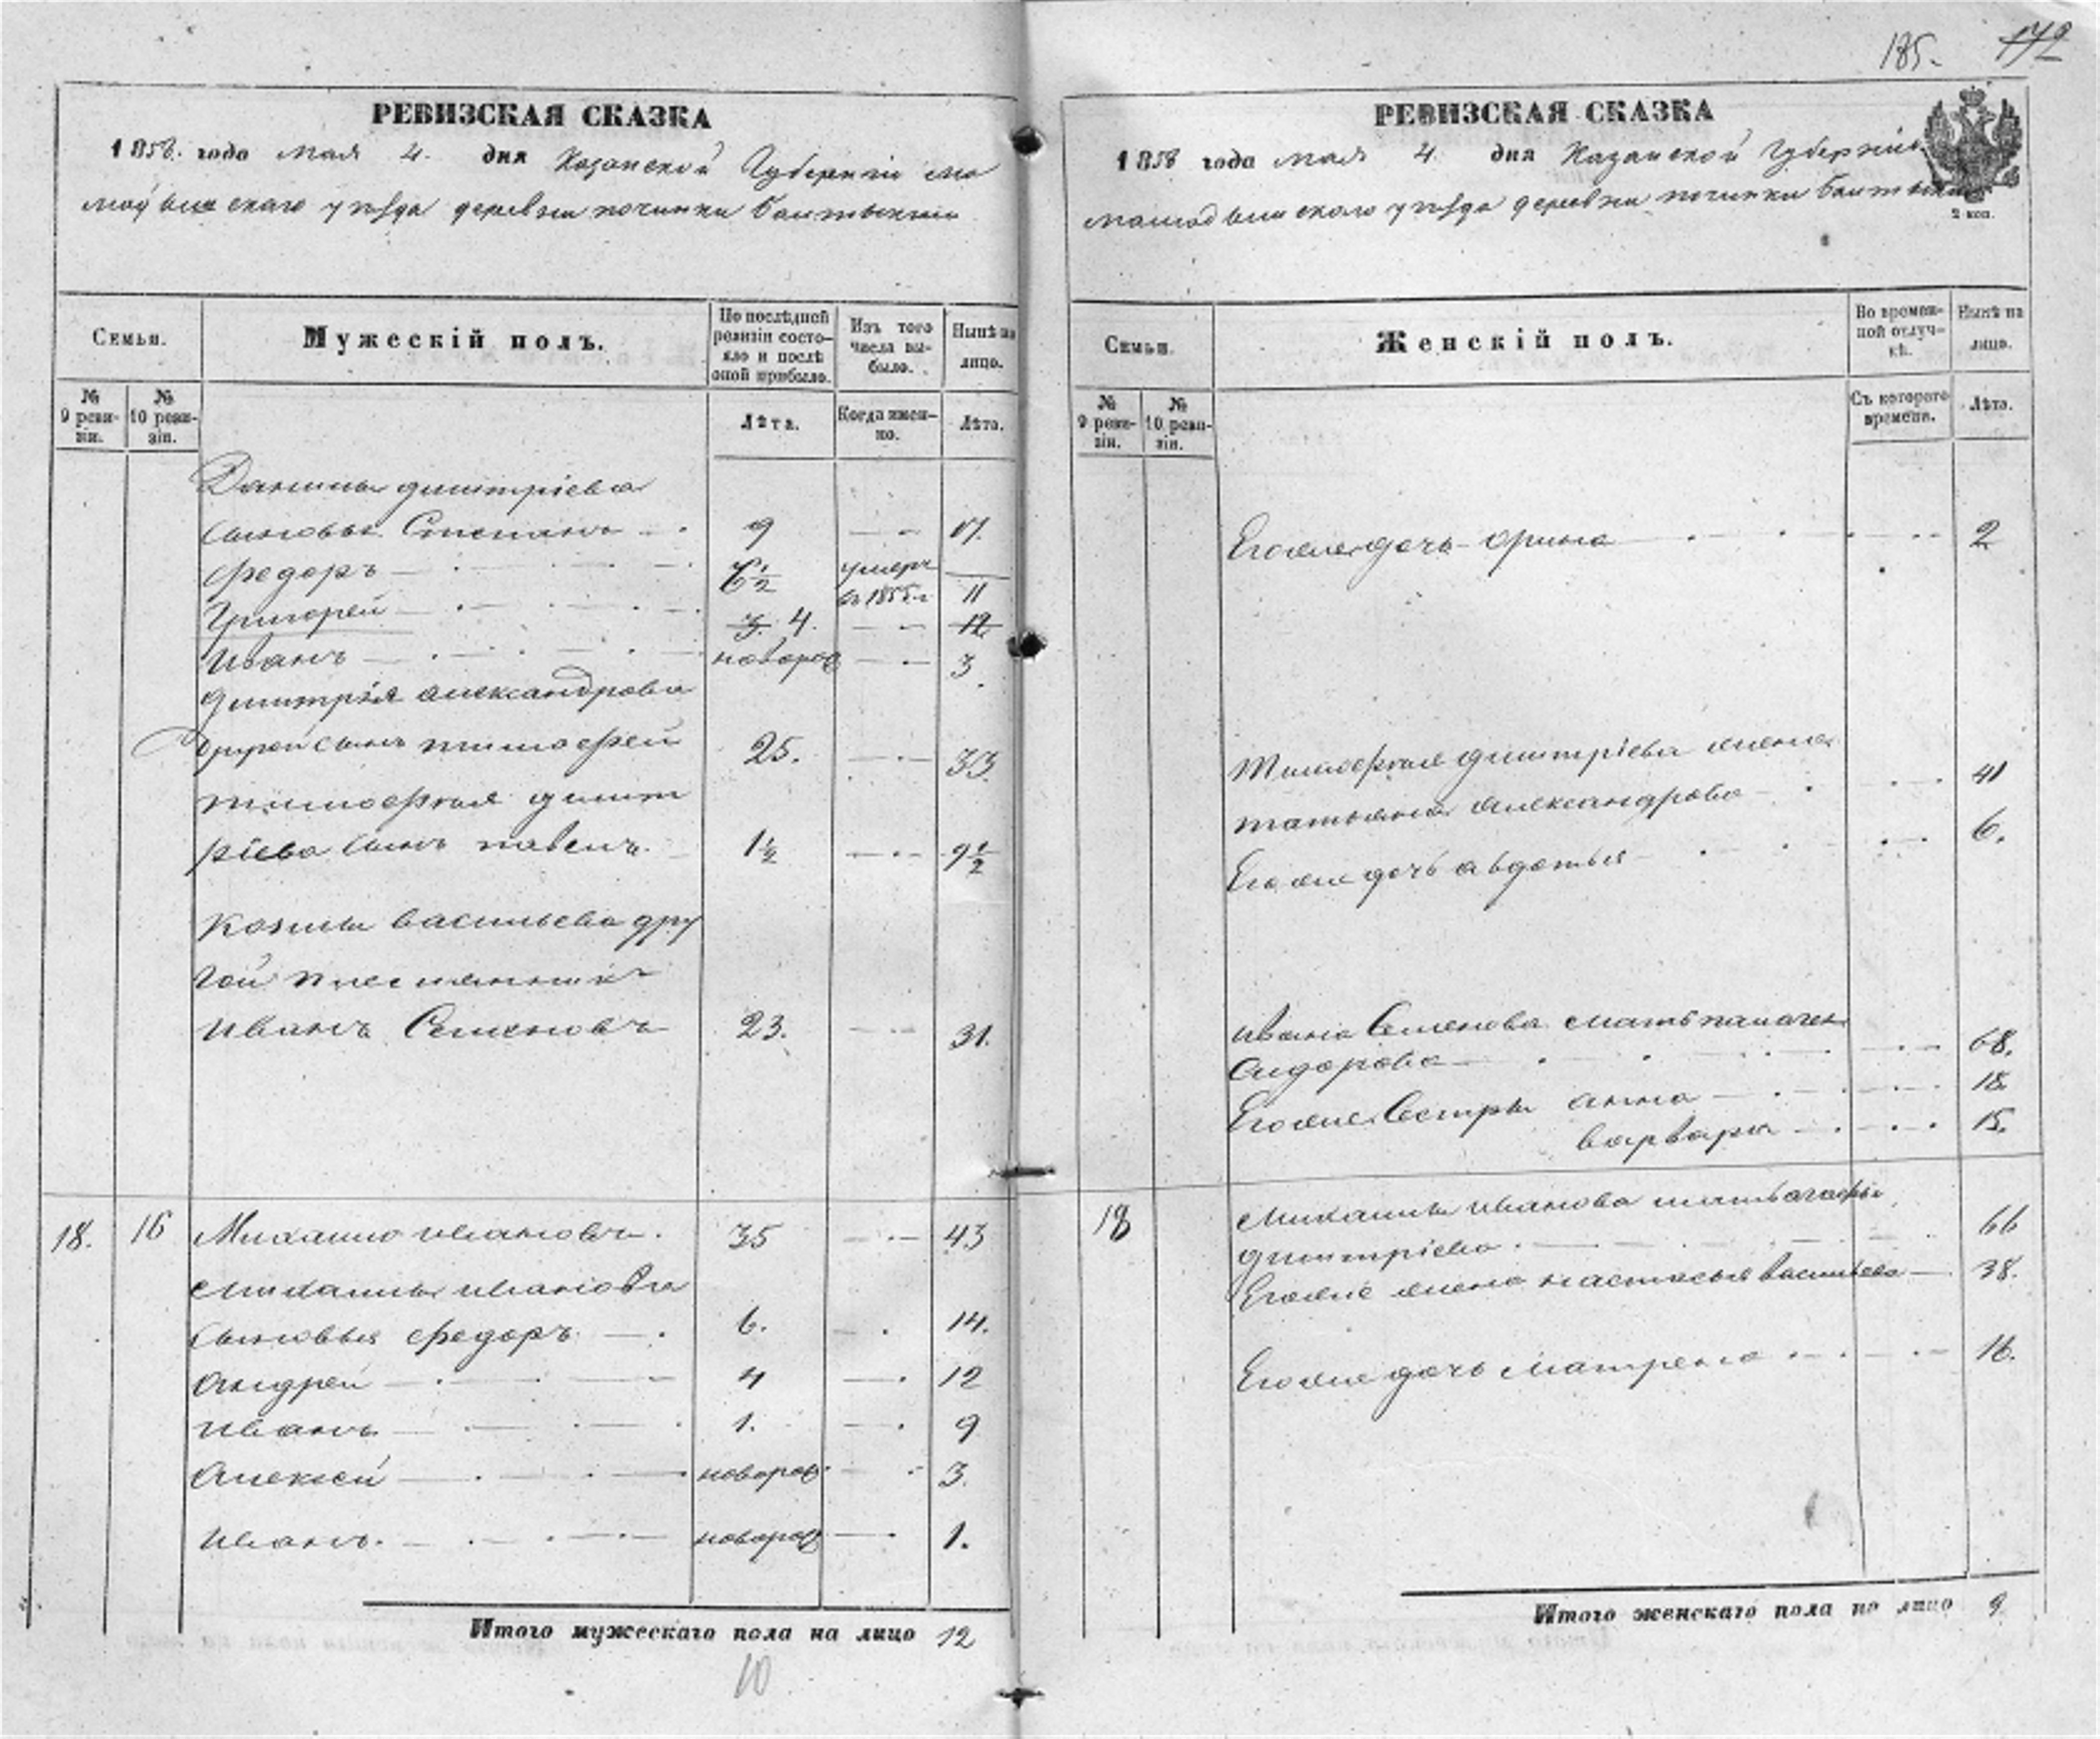 185. 172
РЕВИЗСКАЯ СКАЗКА
1858. года мая 4. дня Казанской Губерніи Ма
мадышскаго уѣзда деревни починки
Семьи.
Мужескій полъ.
По послѣдней ревизіи состояло и послѣ оной прибыло.
Изъ того числа выбыло.
Нынѣ на лицо.
№ 9 ревизіи.
№ 10 ревизіи.
Лѣта.
Когда именно.
Лѣта.
Данилы дмитріева
сыновья Степанъ 9 17.
Федоръ 6 1/2 умеръ въ 1855 г
Григорей 3. 4. 11 12
Иванъ новорож 3
дмитрія александрова
другой сынъ тимофей 25. 33.
тимофея дмит
ріева сынъ павелъ. 1 1/2 9 1/2
Козмы васильева дру
гой племянникъ
Иванъ Семеновъ 23. 31.
18. 16 Михайло ивановъ. 35 43
михайлы иванова
сыновья федоръ 6. 14.
Андрей 4 12
Иванъ 1. 9
Алексей новорож. 3.
Иванъ. новорож 1.
Итого мужескаго пола на лицо 12
10
РЕВИЗСКАЯ СКАЗКА
1858 года мая 4 дня Казанской Губерніи
мамадышскаго уѣзда деревни починки
2 коп.
Семьи.
Женскій полъ.
Во временной отлучкѣ.
Нынѣ на лицо.
№ 9 ревизіи.
№ 10 ревизіи.
Съ котораго времени.
Лѣта.
Егоже дочь орина 2
Тимофея дмитріева жена
татьяна александрова 41
Егоже дочь авдотья 6.
Ивана Семенова мать
Сидорова 68.
Егоже Сестры анна 18.
варвара 15.
18 михайлы иванова мать
дмитріева. 66
Егоже жена настасья васильева 38.
Егоже дочь матрена 16.
Итого женскаго пола на лицо 9